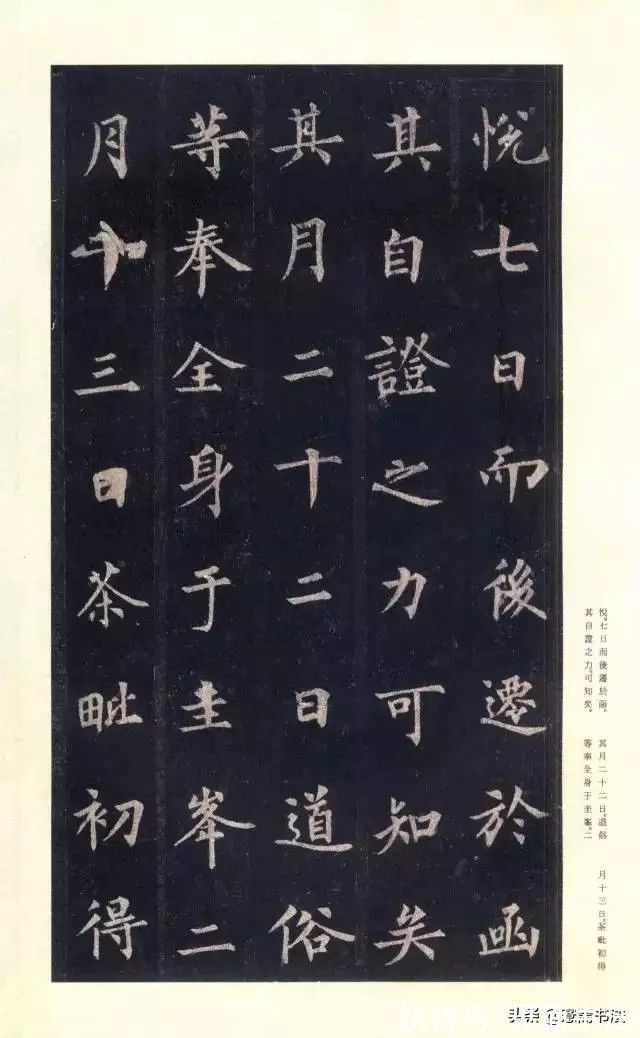 悅七日而後遷於函
其自證之力可知矣
其月二十二日道俗
等奉全身于圭峯二
月十三日茶毗初得
悅。七日而後遷於函。
其自證之力。可知矣。
其月二十二日。道俗
等奉全身于圭峯。二
月十三日。茶毗初得
快传号/
头条 书法